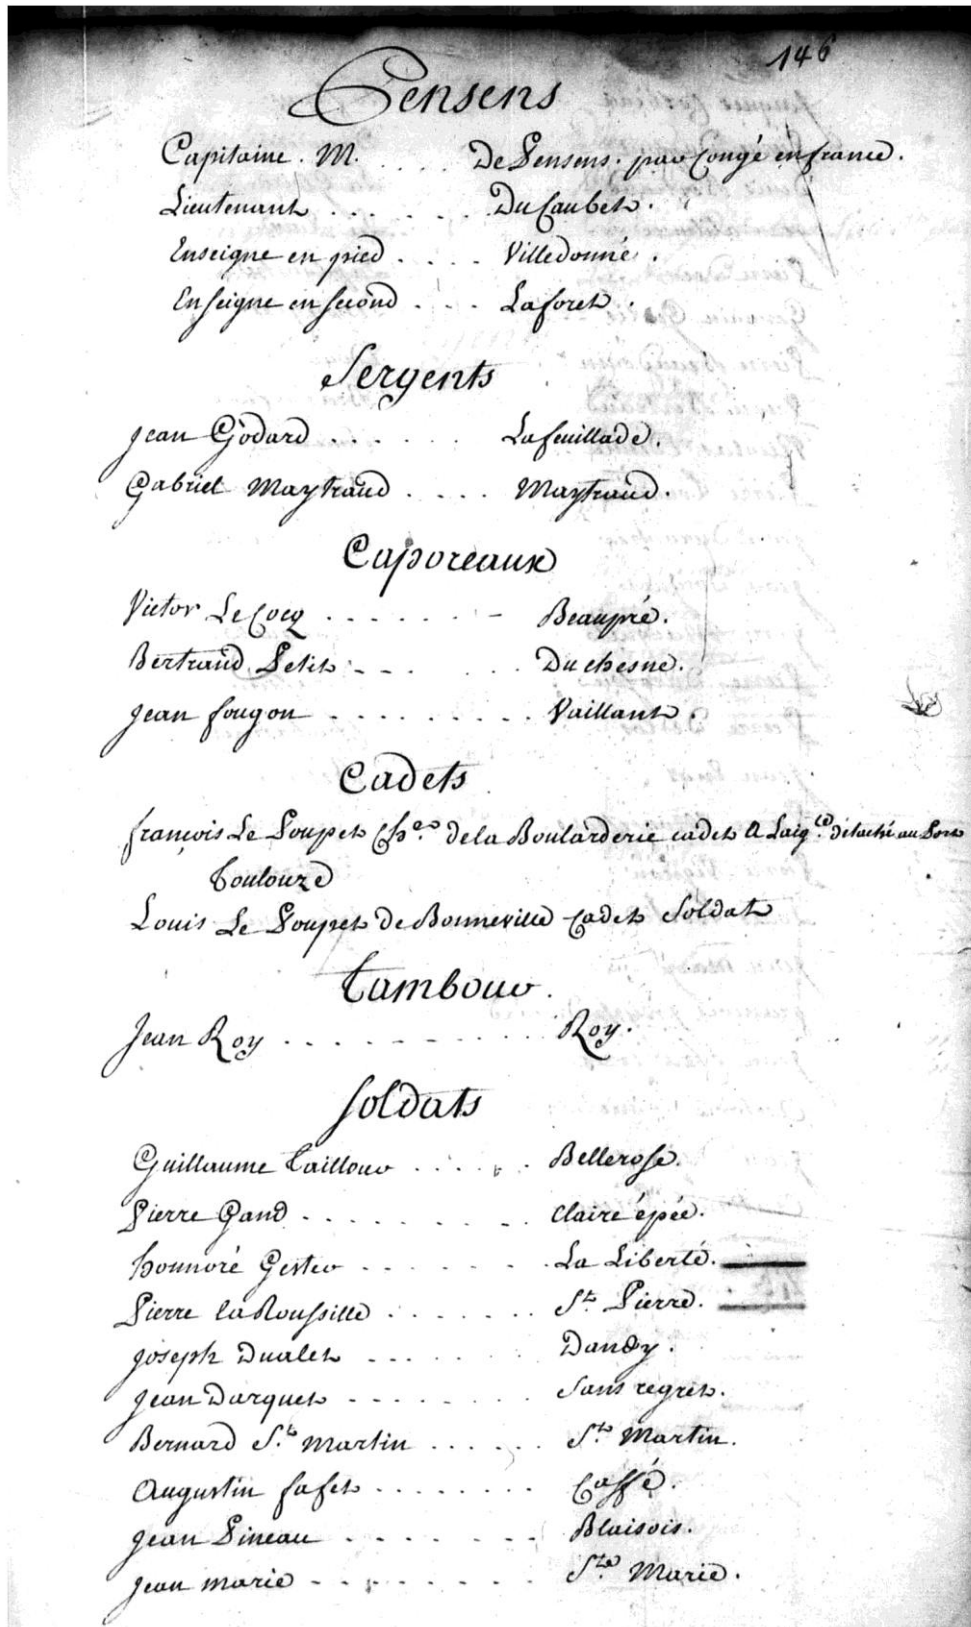 146
Pensens
Capitaine. M. . . . De Pensens. par Congé en france.
Lieutenant . . . . . . Du Caubet.
Enseigne en pied . . . . Villedonné.
Enseigne en second . . . Laforet.
Sergents
Jean Godard . . . . . . Lafeuillade.
Gabriel Maytraud . . . . Maytraud.
Caporeaux
Victor Le Cocq . . . . . . - Beaupré.
Bertrand Petit - - - . . . Duchesne.
Jean fougon . . . . . . . . . Vaillant.
Cadets
françois Le Poupet Ch.er de la Boularderie cadet a Laig.te détaché au Port
Toulouze
Louis Le Poupet de Bonneville Cadet Soldat
Tambour.
Jean Roy . . . . . . . . . . Roy.
Soldats
Guillaume Taillour . . . . . Bellerose.
Pierre Gand . . . . . . . . . Claire épée.
honnoré Gester . . . . . . . La Liberté.
Pierre la Roussille . . . . . . . St. Pierre.
Joseph Dualet . . . . . . Dandy.
Jean Darquet . . . . . . . Sans regret.
Bernard St. Martin . . . . . . St. Martin.
Augustin fafet . . . . . . . . Caffé.
Jean Pineau . . . . . . . . Blaisois.
Jean marie . . . . . . . . Ste. Marie.